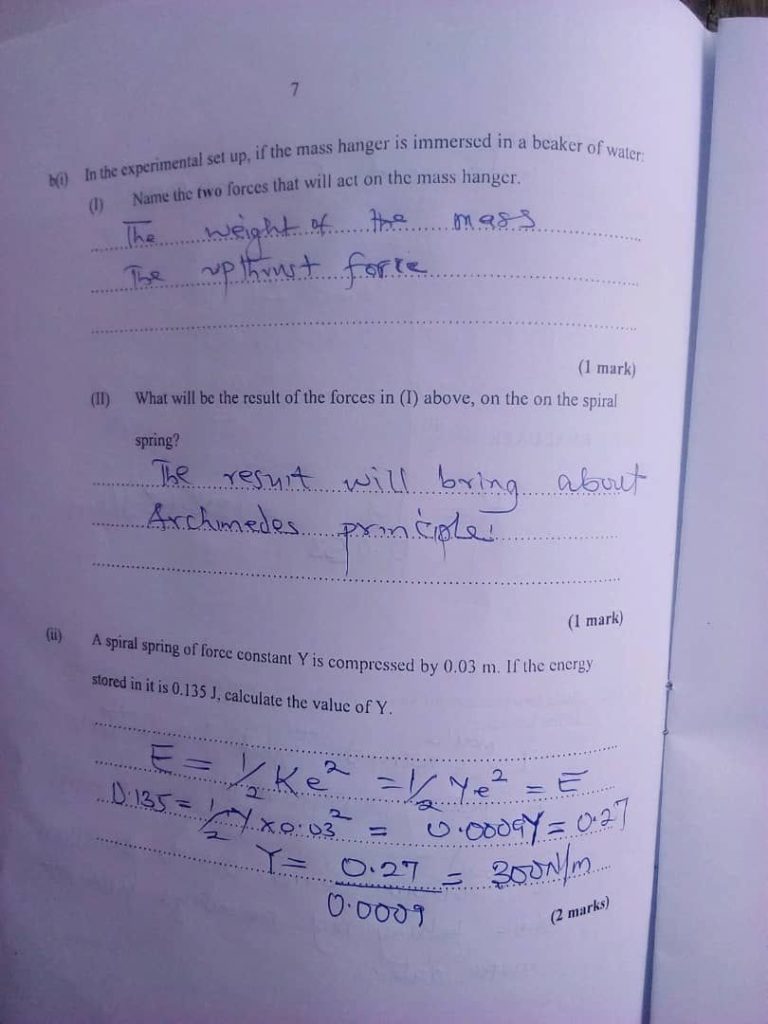 7
b(i) In the experimental set up, if the mass hanger is immersed in a beaker of water:
(I) Name the two forces that will act on the mass hanger.
The weight of the mass
The upthrust force
(1 mark)
(II) What will be the result of the forces in (I) above, on the on the spiral
spring?
The result will bring about
Archimedes principle.
(1 mark)
(ii) A spiral spring of force constant Y is compressed by 0.03 m. If the energy
stored in it is 0.135 J, calculate the value of Y.
E = 1/2 Ke² = 1/2 Ye² = E
0.135 = 1/2 Y x 0.03² = 0.0009Y = 0.27
Y = 0.27 = 300N/m
0.0009
(2 marks)